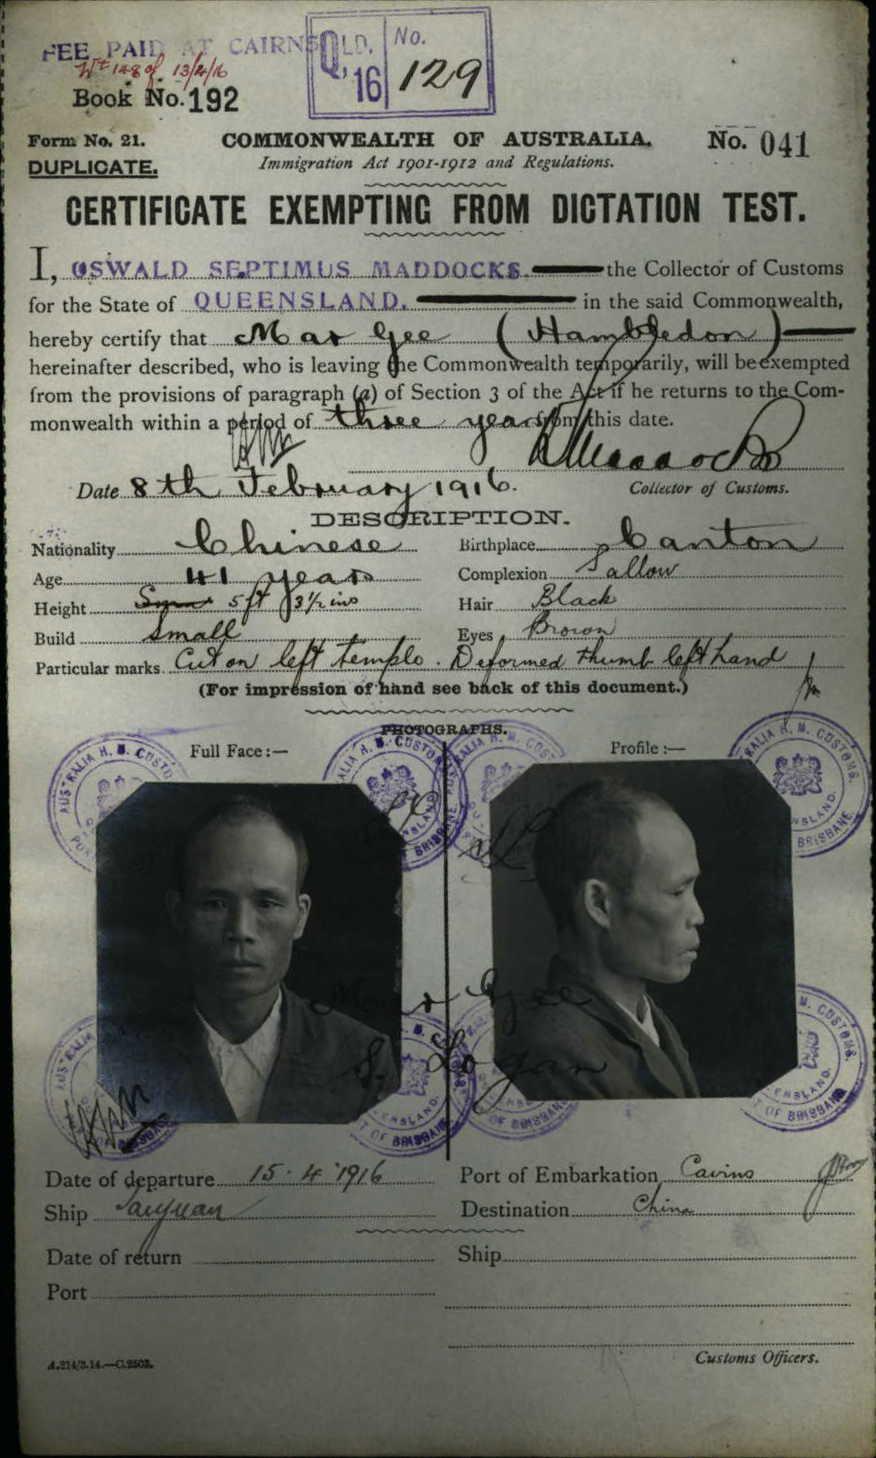 FEE PAID AT CAIRNS
13/4/16
QLD. No.
'16 129
Book No. 192
Form No. 21. COMMONWEALTH OF AUSTRALIA. No. 041
DUPLICATE. Immigration Act 1901-1912 and Regulations.
CERTIFICATE EXEMPTING FROM DICTATION TEST.
I, OSWALD SEPTIMUS MADDOCKS. the Collector of Customs
for the State of QUEENSLAND. in the said Commonwealth,
hereby certify that Mar Gee (Hambledon)
hereinafter described, who is leaving the Commonwealth temporarily, will be exempted
from the provisions of paragraph (a) of Section 3 of the Act if he returns to the Com-
monwealth within a period of three years from this date.
Date 8th February 1916. Collector of Customs.
DESCRIPTION.
Nationality Chinese Birthplace Canton
Age 41 years Complexion Sallow
Height 5 ft 3½ ins Hair Black
Build Small Eyes Brown
Particular marks. Cut on left temple. Deformed thumb left hand
(For impression of hand see back of this document.)
PHOTOGRAPHS.
Full Face:— Profile:—
AUSTRALIA H. M. CUSTOMS. QUEENSLAND. PORT OF BRISBANE
Mar Gee
S. Logan
Date of departure 15.4.1916 Port of Embarkation Cairns
Ship Taiyuan Destination China
Date of return Ship
Port
A.214/3.14.—C.2503. Customs Officers.